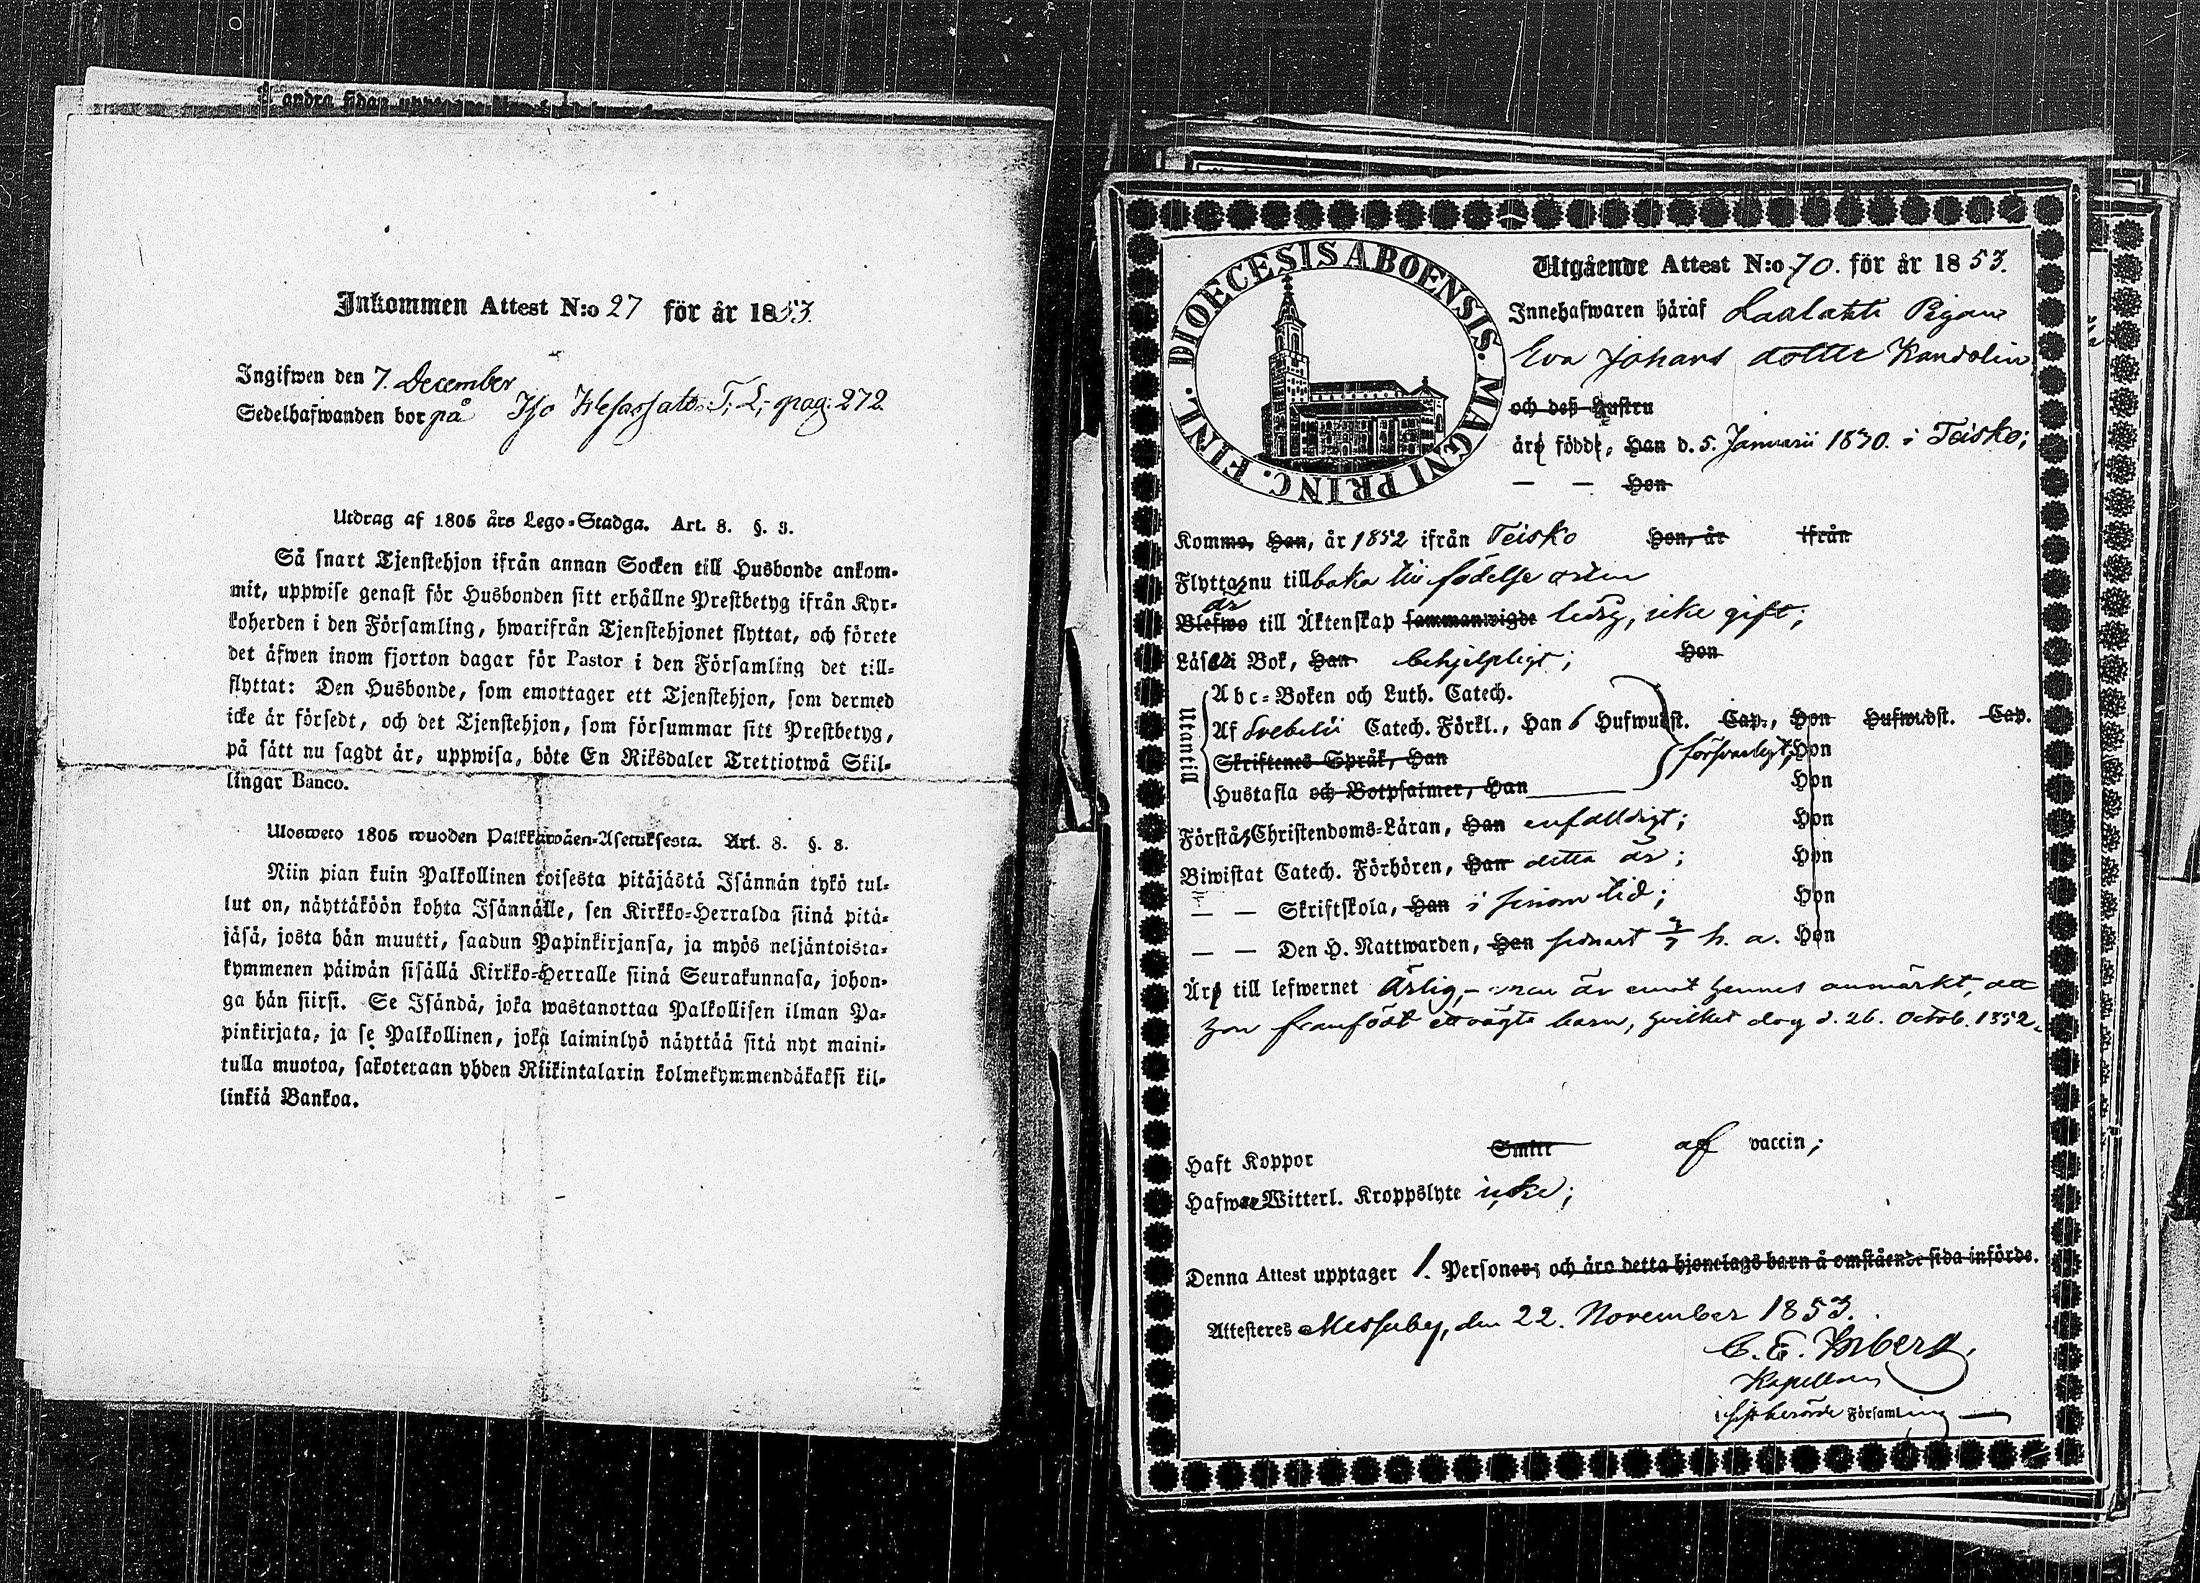 Inkommen Attest N:o 27 för år 1853.
Ingifwen den 7. December
Sedelhafwanden bor på Iso pag: 272.
Utdrag af 1805 års Lego-Stadga. Art. 8. §. 3.
Så snart Tjenstehjon ifrån annan Socken till Husbonde ankom-
mit, uppwise genast för Husbonden sitt erhållne Prestbetyg ifrån Kyr-
koherden i den Församling, hwarifrån Tjenstehjonet flyttat, och förete
det äfwen inom fjorton dagar för Pastor i den Församling det till-
flyttat: Den Husbonde, som emottager ett Tjenstehjon, som dermed
icke är försedt, och det Tjenstehjon, som försummar sitt Prestbetyg,
på sätt nu sagdt är, uppwisa, böte En Riksdaler Trettiotwå Skil-
lingar Banco.
Ulosweto 1805 wuoden Palkkawäen-Asetuksesta. Art. 8. §. 3.
Niin pian kuin Palkollinen toisesta pitäjästä Isännän tykö tul-
lut on, näyttäköön kohta Isännälle, sen Kirkko-Herralda siinä pitä-
jäsä, josta hän muutti, saadun Papinkirjansa, ja myös neljäntoista-
kymmenen päiwän sisällä Kirkko-Herralle siinä Seurakunnasa, johon-
ga hän siirsi. Se Isändä, joka wastanottaa Palkollisen ilman Pa-
pinkirjata, ja se Palkollinen, joka laiminlyö näyttää sitä nyt maini-
tulla muotoa, sakotetaan yhden Riikintalarin kolmekymmendäkaksi kil-
linkiä Bankoa.
DIOECESIS ABOENSIS. MAGNI PRINC. FINL.
Utgående Attest N:o 70. för år 1853.
Innehafwaren häraf Pigan
Eva Johans dotter Kandolin
och deß Hustru
äro födde, Han d. 5. Januarii 1830. i Teisko;
— — Hon
Komma, Han, år 1852 ifrån Teisko Hon, år ifrån
Flytta nu tillbaka till födelse orten
är
Blefwo till Äktenskap sammanwigde ledig, icke gift;
Läser i Bok, Han behjelpligt; Hon
Utantill
Abc-Boken och Luth. Catech.
Af Svebelii Catech. Förkl., Han 6 Hufwudst. Cap., Hon Hufwudst. Cap.
Skriftenes Språk, Han försvarligt; Hon
Hustafla och Botpsalmer, Han Hon
Förstår Christendoms-Läran, Han enfalldigt; Hon
Biwistat Catech. Förhören, Han detta år; Hon
— — Skriftskola, Han i sinom tid; Hon
— — Den H. Nattwarden, Han senast h. a. Hon
Äro till lefwernet Ärlig,- men är emot hennes anmärkt, att
hon framfödt oächta barn, hvilket dog d. 26. Octob. 1852.
Haft Koppor Smitt af vaccin;
Hafwer Witterl. Kroppslyte icke;
Denna Attest upptager 1. Personer; och äro detta hjonelags barn å omstående sida införde.
Attesteres Messuby, den 22. November 1853.
C. E.
Kapellan
i Församling